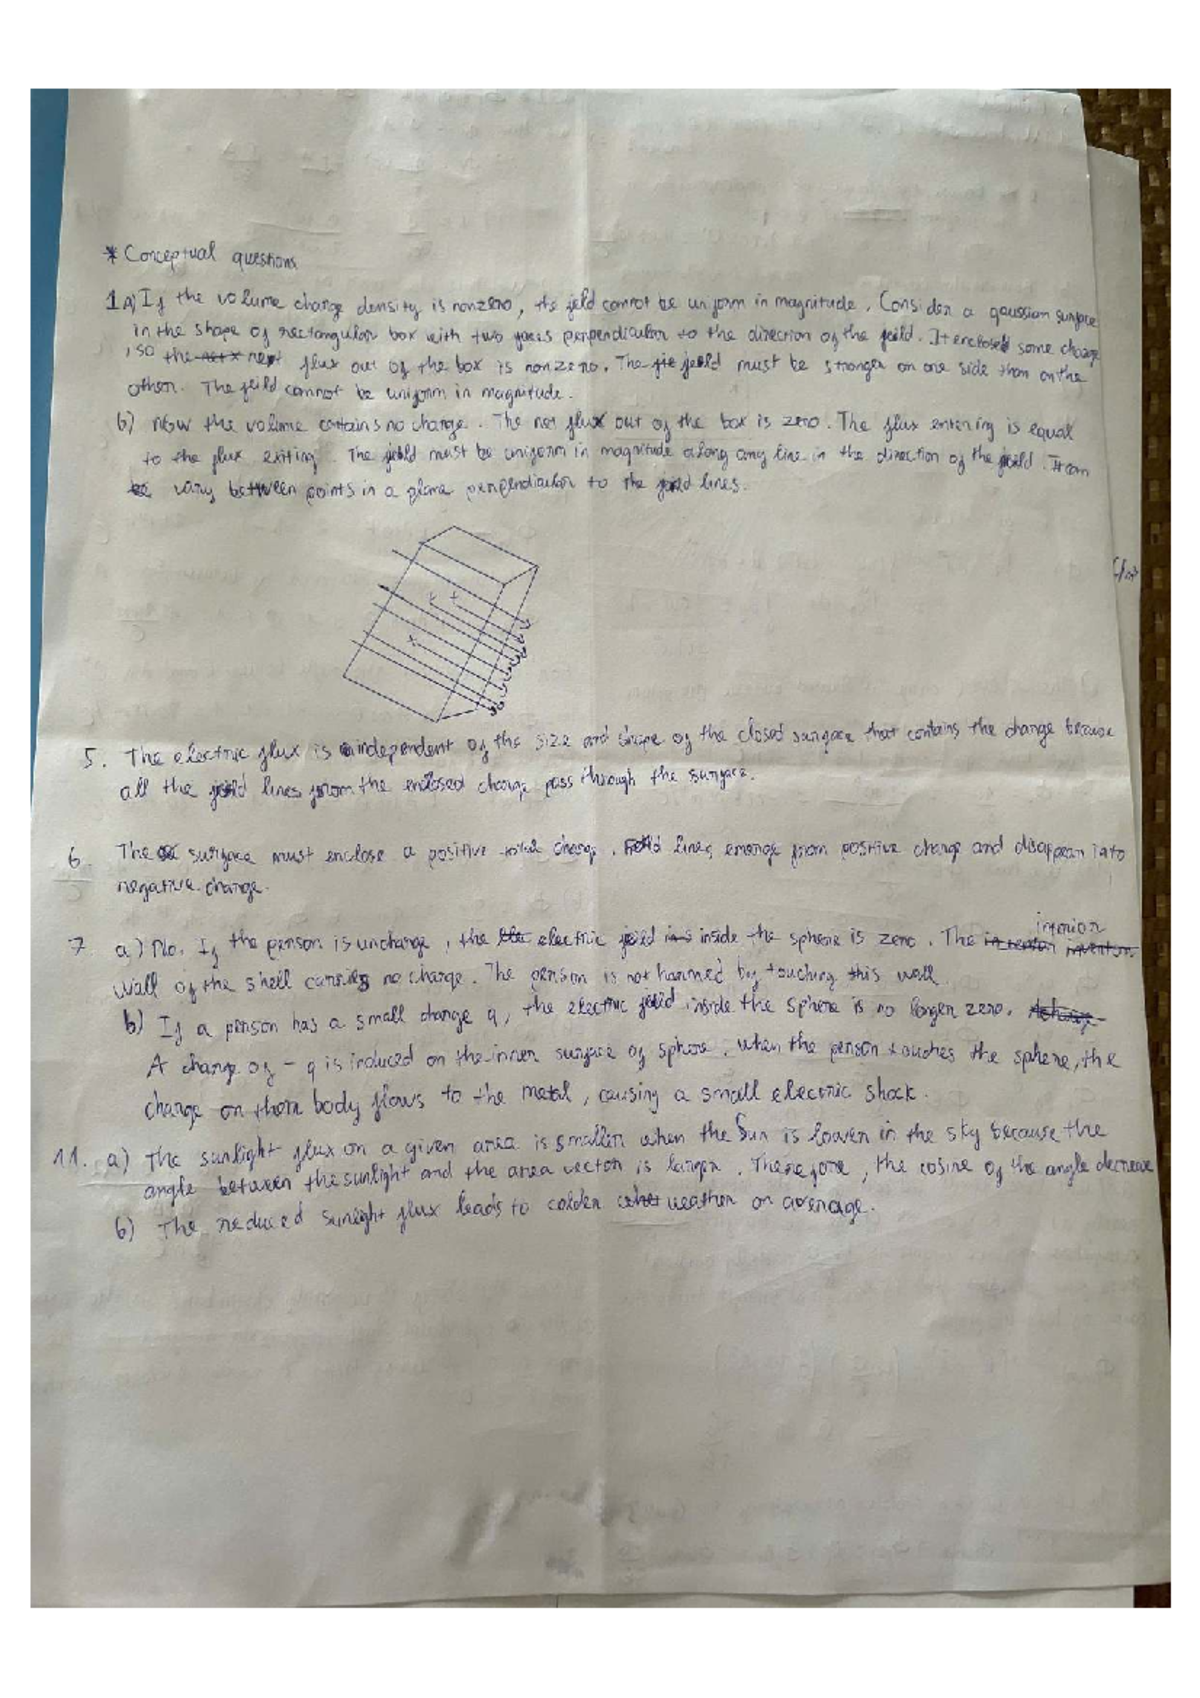 * Conceptual questions
1 A) If the volume charge density is nonzero, the feild cannot be uniform in magnitude. Consider a gaussian surface
in the shape of rectangular box with two faces perpendicular to the direction of the feild. It enclosed some charge
, so the net flux out of the box is nonzero. The feild must be stronger on one side than on the
other. The feild cannot be uniform in magnitude.
b) Now the volume contains no charge. The net flux out of the box is zero. The flux entering is equal
to the flux exiting. The feild must be uniform in magnitude along any line in the direction of the feild. It can
vary between points in a plane perpendicular to the feild lines.
5. The electric flux is independent of the size and shape of the closed surface that contains the charge because
all the feild lines from the enclosed charge pass through the surface.
6. The surface must enclose a positive total charge. Feild lines emerge from positive charge and disappear into
negative charge.
7 a) No. If the person is uncharge, the electric feild inside the sphere is zero. The interior
wall of the shell carries no charge. The person is not harmed by touching this wall
b) If a person has a small charge q, the electric feild inside the sphere is no longer zero.
A charge of - q is induced on the inner surface of sphere. When the person touches the sphere, the
charge on them body flows to the metal, causing a small electric shock.
11. a) The sunlight flux on a given area is smaller when the Sun is lower in the sky because the
angle between the sunlight and the area vector is larger. Therefore, the cosine of the angle decrease
b) The reduced sunlight flux leads to colder weather on average.